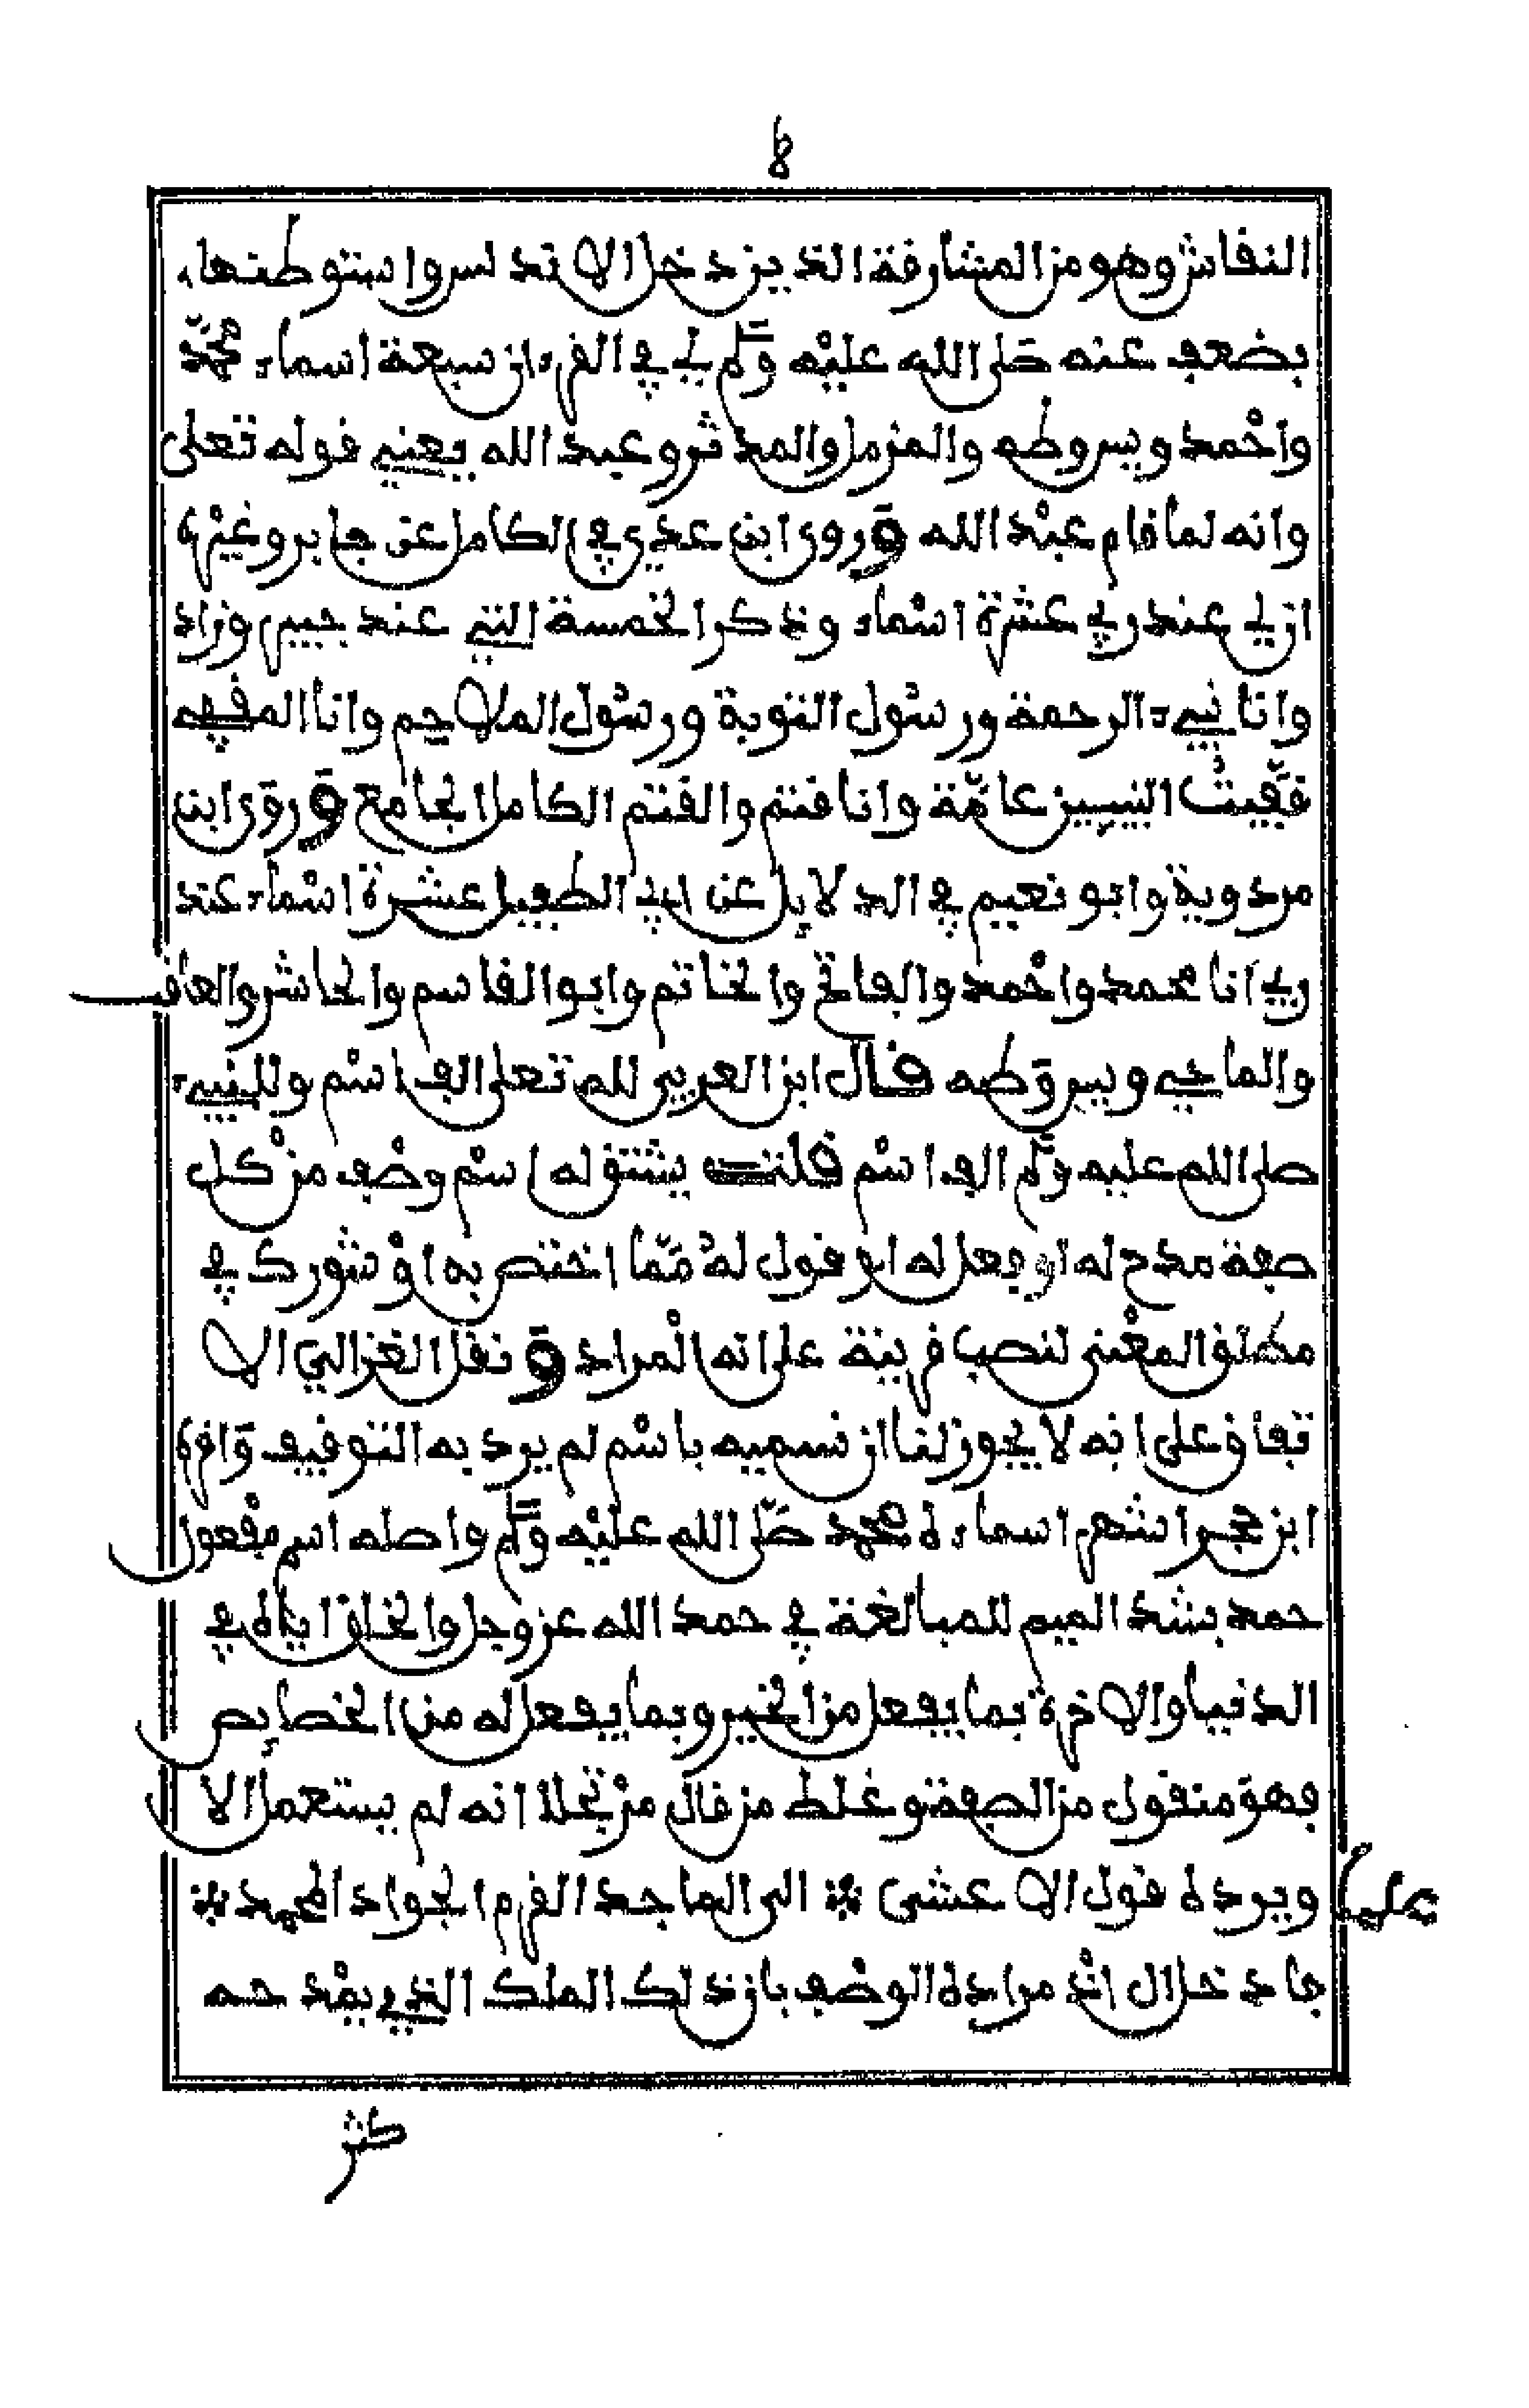 النقاش وهو من المشارقة الذين دخل الاندلس واستوطنها،
بضعف عنه صلى الله عليه وسلم لي في القرءان سبعة اسماء محمد
واحمد ويس وطه والمزمل والمدثر وعبد الله يعني قوله تعلى
وانه لما قام عبد الله وروى ابن عدي في الكامل عن جابر وغيره
ان لي عند ربي عشرة اسماء وذكر الخمسة التي عند جبير وزاد
وانا نبيء الرحمة ورسول التوبة ورسول الملاحم وانا المقفي
قفيت النبيين عامة وانا قثم والقثم الكامل الجامع وروى ابن
مردوية وابو نعيم في الدلايل عن ابي الطفيل عشرة اسماء عند
ربي انا محمد واحمد والفاتح والخاتم وابو القاسم والحاشر والعاقب
والماحي ويس وطه قال ابن العربي لله تعلى الف اسم وللنبيء
صلى الله عليه وسلم الف اسم قلت يشتق له اسم وصف من كل
صفة مدح له او فعل له او قول له مما اختص به او شورك في
مطلق المعنى لنصب قرينة على انه المراد ونقل الغزالي الا
تفاق على انه لا يجوز لنا ان نسميه باسم لم يرد به التوقيف واقره
ابن حجر اشهر اسماءه محمد صلى الله عليه وسلم واصله اسم مفعول
حمد بشد الميم للمبالغة في حمد الله عز وجل والخلق اياه في
الدنيا والاخرة بما يفعل من الخير وبما يفعل له من الخصايص
فهو منقول من الصفة وغلط من قال مرتجلا انه لم يستعمل الا
ويرده قول الاعشى الى الماجد القرم الجواد المحمد
جاد خلال اذ مراده الوصف بان ذلك الملك الذي يمدحه
كثر